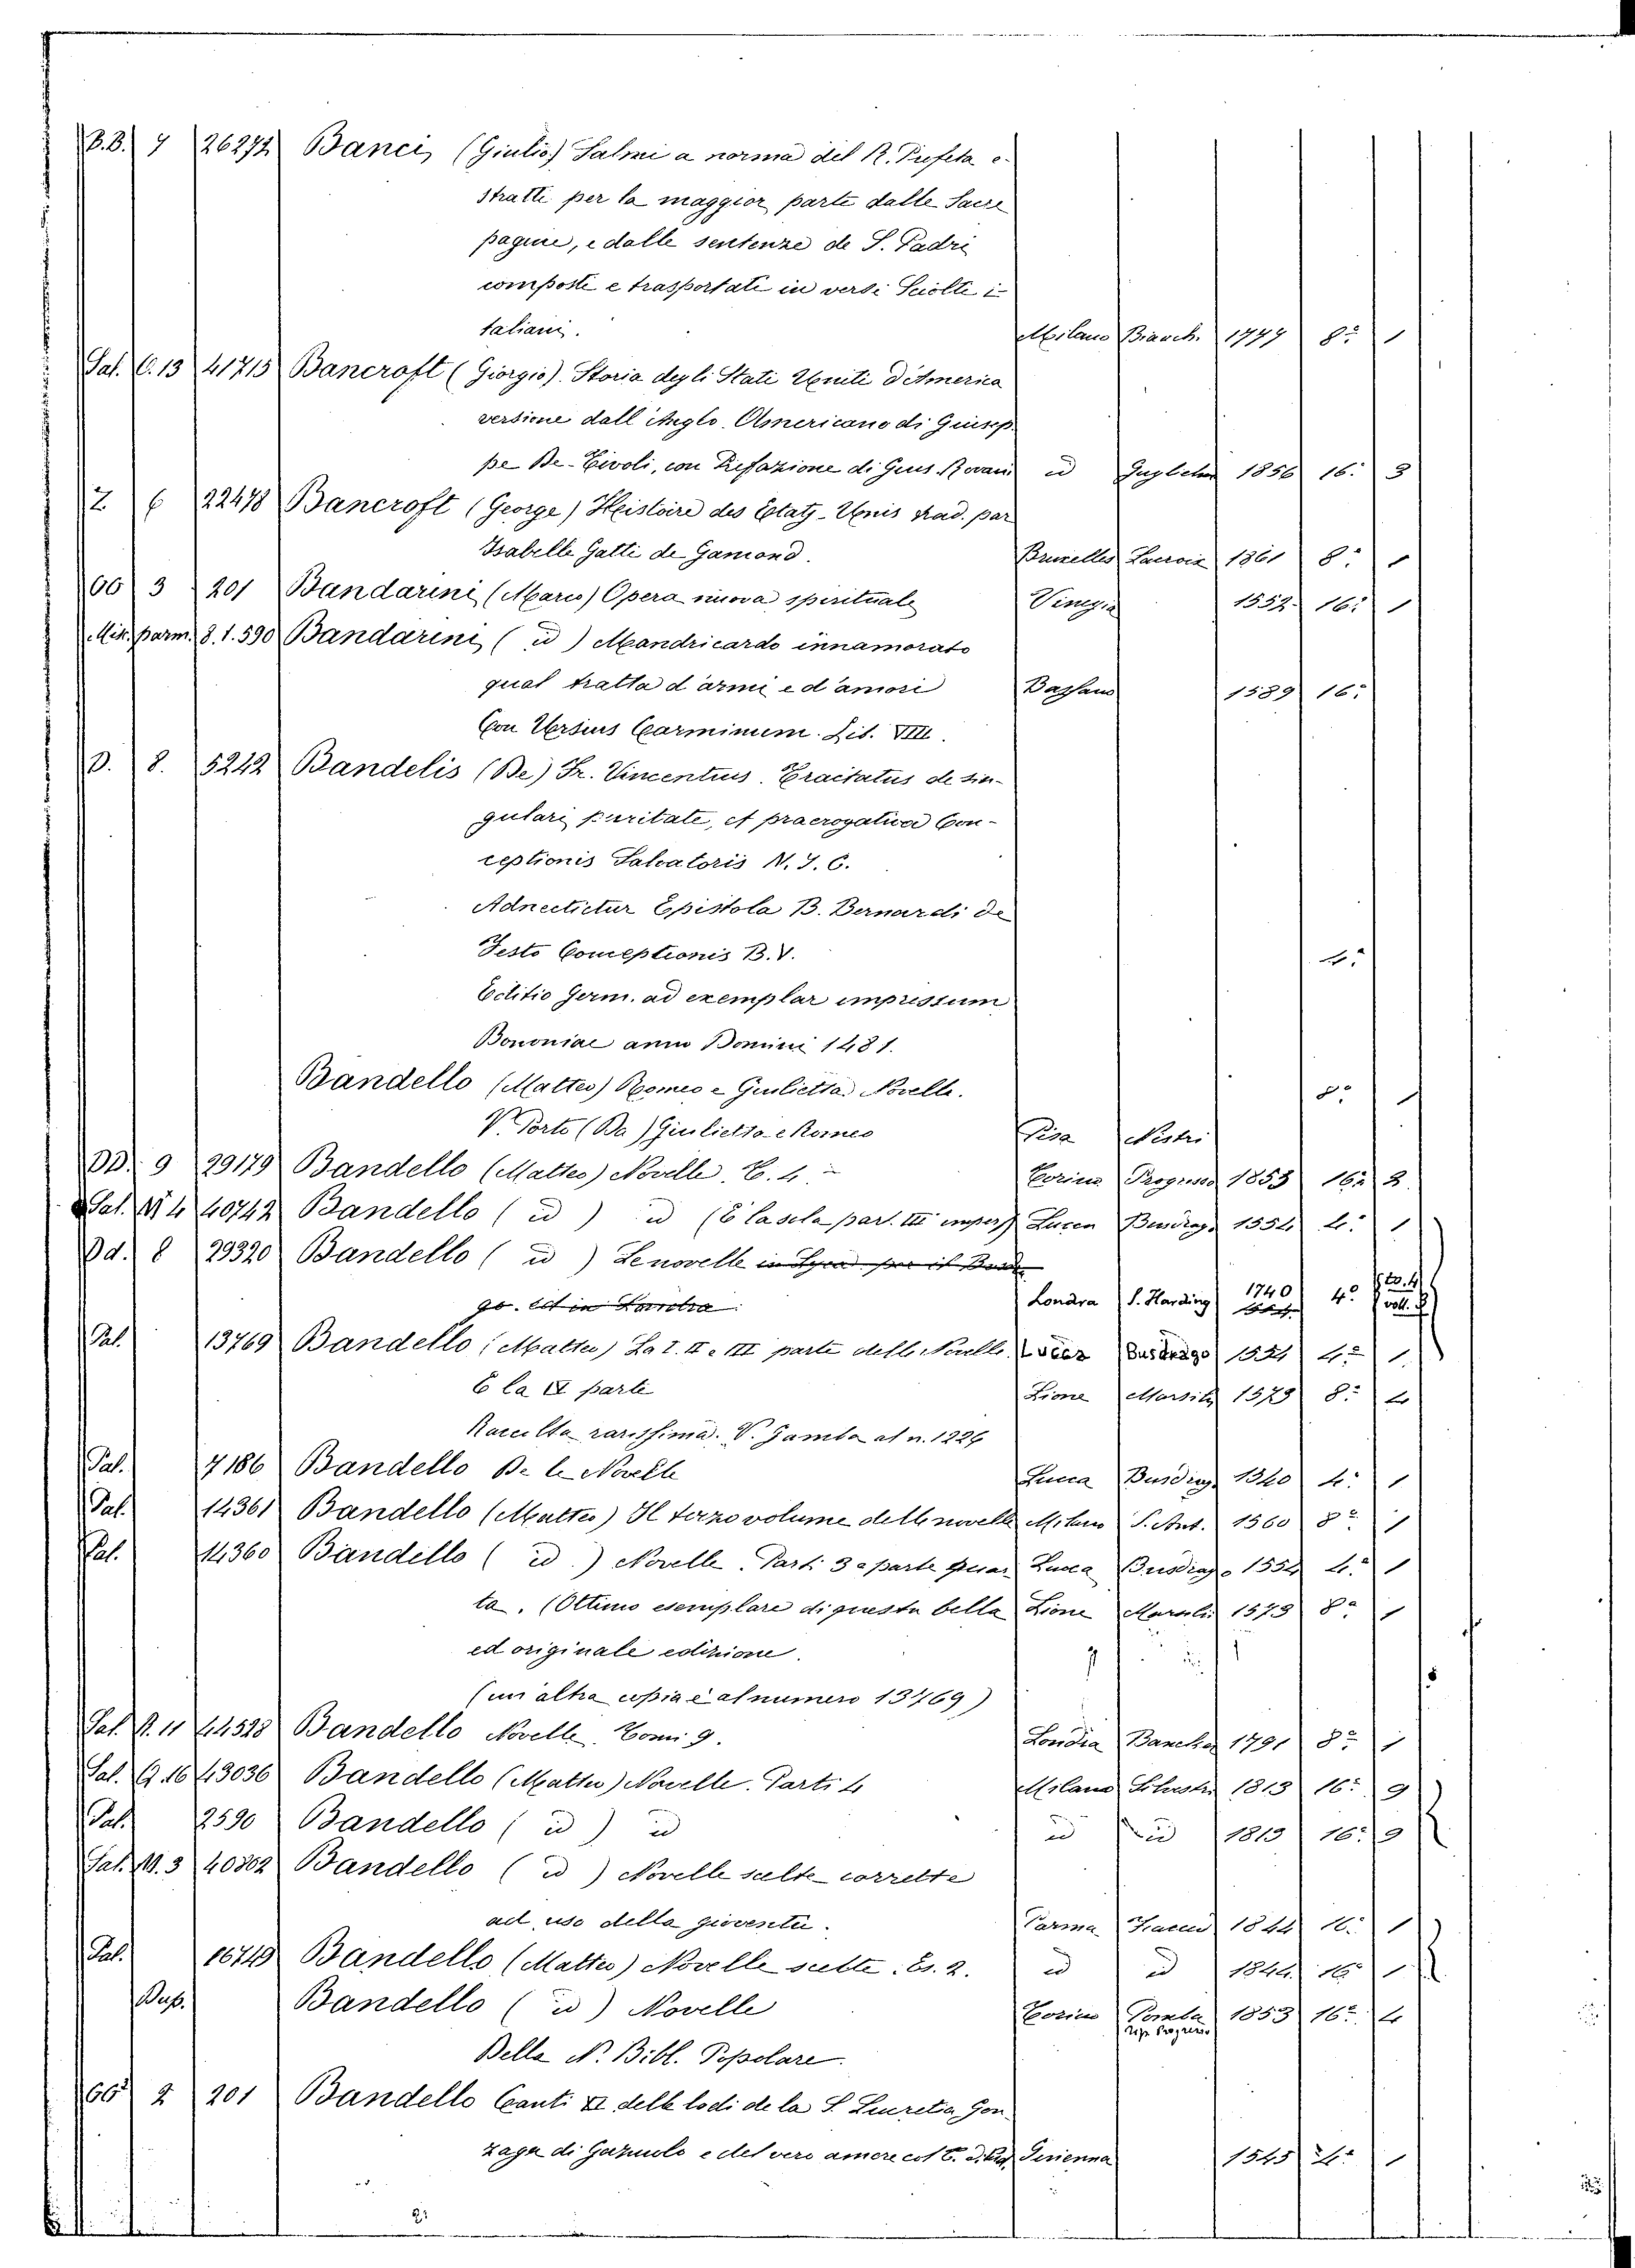 B.B. 7 26272 Banci, (Giulio) Salmi a norma del R. Profeta e-
stratti per la maggior parte dalle Sacre
pagine, e dalle sentenze de S. Padri
composti e trasportati in versi Sciolti i-
taliani. Milano Bianch. 1777 8.° 1
Sal. C. 13 41715 Bancroft (Giorgio). Storia degli Stati Uniti d'America
versione dall'Anglo-Americano di Giusep-
pe De-Tivoli, con Prefazione di Gius. Rovani id Guglielm 1856 16.° 3
Z 6 22478 Bancroft (George) Heistoire des Etatz-Unis trad. par
Isabelle Gatti de Gamond. Bruxelles Lacroix 1861 8.° 1
66 3 201 Bandarini (Marco) Opera nuova spirituale Vinegia 1552 16.° 1
Mik. parm. 8. 1. 590 Bandarini (id) Mandricardo innamorato
qual tratta d'armi e d'amori Bassano 1589 16.°
Con Ursius Carminum. Lib. VIII.
D. 8. 5242 Bandelis (De) Fr. Vincentius. Tractatus de sin-
gulari puritate, et praerogativa Con-
ceptionis Salvatoris N. J. C.
Adnectictur Epistola B. Bernardi de
Festo Conceptionis B. V. 4.°
Editio Germ. ad exemplar impressum
Bononiae anno Domini 1481.
Bandello (Matteo) Romeo e Giulietta. Novelle. 8.° 1
V. Porto (Da) Giulietta e Romeo Pisa Nistri
DD. 9 29179 Bandello (Matteo) Novelle. T. 4. Torino Progresso 1853 16.° 2
Sal. N 4 40742 Bandello (id) id (E la sola part. III imperf) Lucca Busdrag. 1554 4.° 1
Dd. 8 29320 Bandello (id) Le novelle in
go. Londra S. Harding 1740 4.° to. 4 voll. 3
Pal. 13769 Bandello (Matteo) La I. II e III parte delle Novelle. Lucca Busdrago 1554 4.° 1
E la IV parte Lione Marsilij 1573 8.°
Raccolta rarissima. V. Gamba al n. 1226
Pal. 7186 Bandello De le Novelle Lucca Busdrag. 4.° 1
Pal. 14361 Bandello (Matteo) Il terzo volume delle novelle Milano S. Ant. 1560 8.° 1
Pal. 14360 Bandello (id.) Novelle. Parti 3 e parte quar- Lucca Busdrago 1554 4.° 1
ta. (Ottimo esemplare di questa bella Lione Marsili 1573 8.° 1
ed originale edizione.
(un'altra copia è al numero 13769)
Sal. R. 11 44528 Bandello Novelle. Tomi 9. Londra Bancker 1791 8.° 1
Sal. G. 16 43036 Bandello (Matteo) Novelle. Parti 4 Milano Silvestri 1813 16.° 9
Pal. 2590 Bandello (id) id id id 1813 16.° 9
Sal. M. 3 40802 Bandello (id) Novelle scelte corrette
ad uso della gioventù. Parma Fiaccad 1844 16.° 1
Pal. 16749 Bandello (Matteo) Novelle scelte. Es. 2. id id 1844. 16.° 1
Dup. Bandello (id) Novelle Torino Pomba 1853 16.° 4
Tip. Progresso
Della N. Bibl. Popolare.
66 2 201 Bandello Canti XI delle lodi de la S. Lucretia Gon-
zaga di Gazuolo e del vero amore col T. di Ginienna 1545 4.° 1